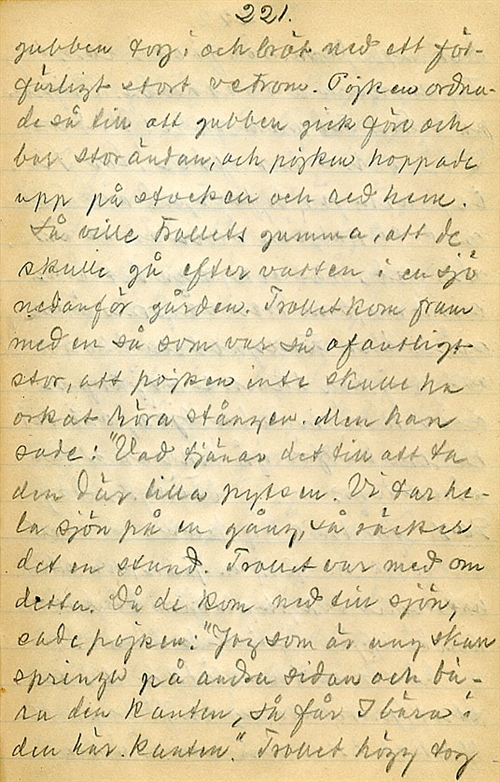 221.
gubben tog i och bröt ned ett för-
färligt stort vetrom. Pojken ordna-
de så till att gubben gick före och
bar storändan, och pojken hoppade
upp på stocken och red hem.
Så ville Trollets gumma, att de
skulle gå efter vatten i en sjö
nedanför gården. Trollet kom fram
med en så som var så ofantligt
stor, att pojken inte skulle ha
orkat röra stången. Men han
sade: "Vad tjänar det till att ta
den där lilla pytsen. Vi tar he-
la sjön på en gång, så räcker
det en stund. Trollet var med om
detta. Då de kom ned till sjön,
sade pojken: "Jag som är ung skall
springa på andra sidan och bä-
ra den kanten, så får I bära i
den här kanten." Trollet högg tag